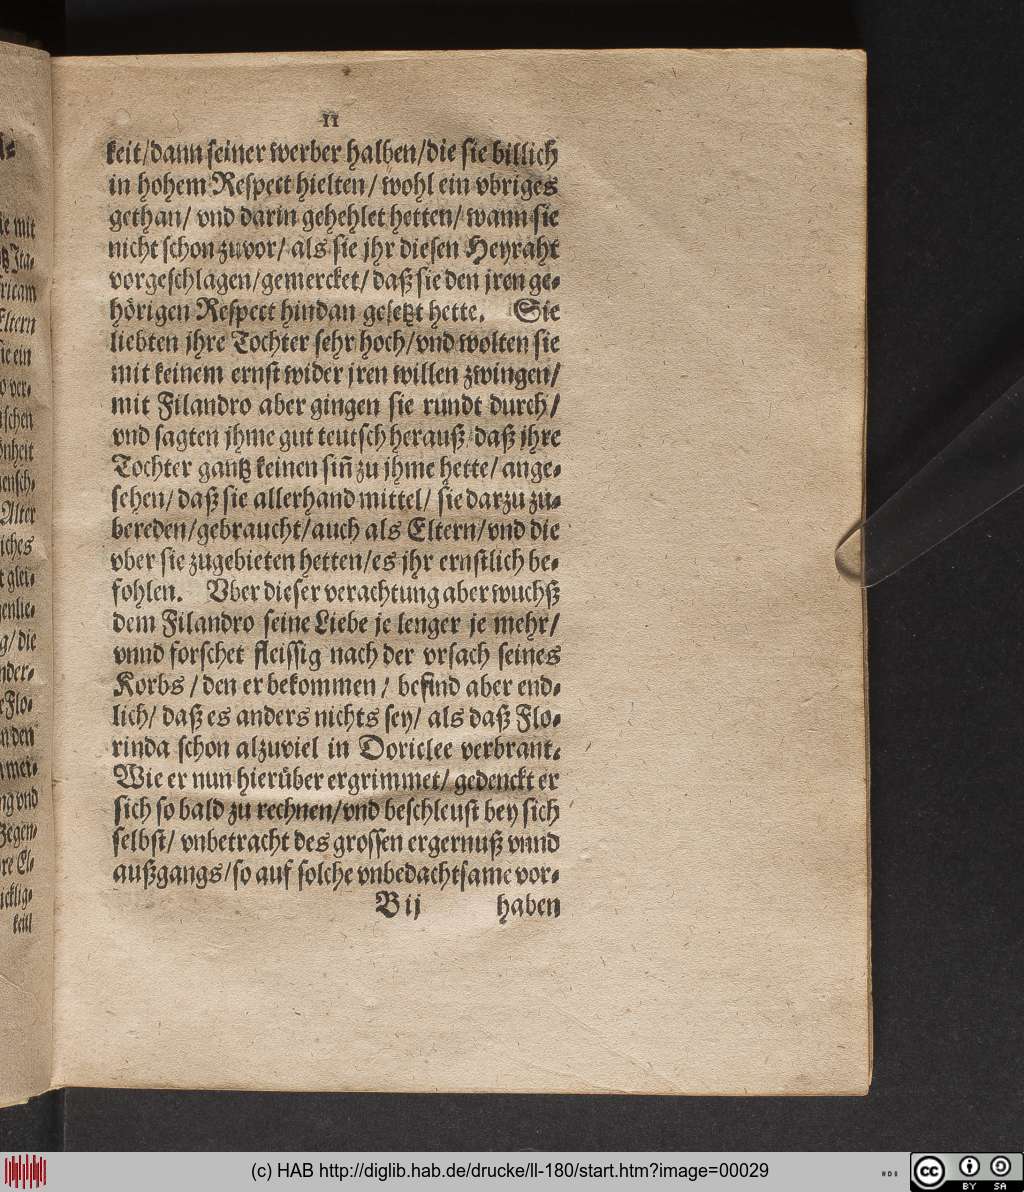 11
keit/dann seiner werber halben/die sie billich
in hohem Respect hielten/ wohl ein vbriges
gethan/ vnd darin gehehlet hetten/ wann sie
nicht schon zuvor/ als sie jhr diesen Heyraht
vorgeschlagen/gemercket/ daß sie den jren ge-
hörigen Respect hindan gesetzt hette. Sie
liebten jhre Tochter sehr hoch/vnd wolten sie
mit keinem ernst wider jren willen zwingen/
mit Filandro aber gingen sie rundt durch/
vnd sagten jhme gut teutsch herauß/ daß jhre
Tochter gantz keinen sin̄ zu jhme hette/ ange-
sehen/ daß sie allerhand mittel/ sie darzu zu-
bereden/gebraucht/auch als Eltern/vnd die
vber sie zugebieten hetten/es jhr ernstlich be-
fohlen. Vber dieser verachtung aber wuchß
dem Filandro seine Liebe je lenger je mehr/
vnnd forschet fleissig nach der vrsach seines
Korbs / den er bekommen / befind aber end-
lich/ daß es anders nichts sey/ als daß Flo-
rinda schon alzuviel in Doriclee verbrant.
Wie er nun hierüber ergrimmet/ gedenckt er
sich so bald zu rechnen/vnd beschleust bey sich
selbst/ vnbetracht des grossen ergernuß vnnd
außgangs/so auf solche vnbedachtsame vor-
B ij haben
ie mit
Eltern
sie ein
schen
önheit
ensch-
Alter
iches
t glei-
enlie-
g/ die
nder-
rFlo-
n den
mei-
ng vnd
Gegen-
re El-
icklig-
keit
(c) HAB http://diglib.hab.de/drucke/ll-180/start.htm?image=00029
HAB
cc
BY SA